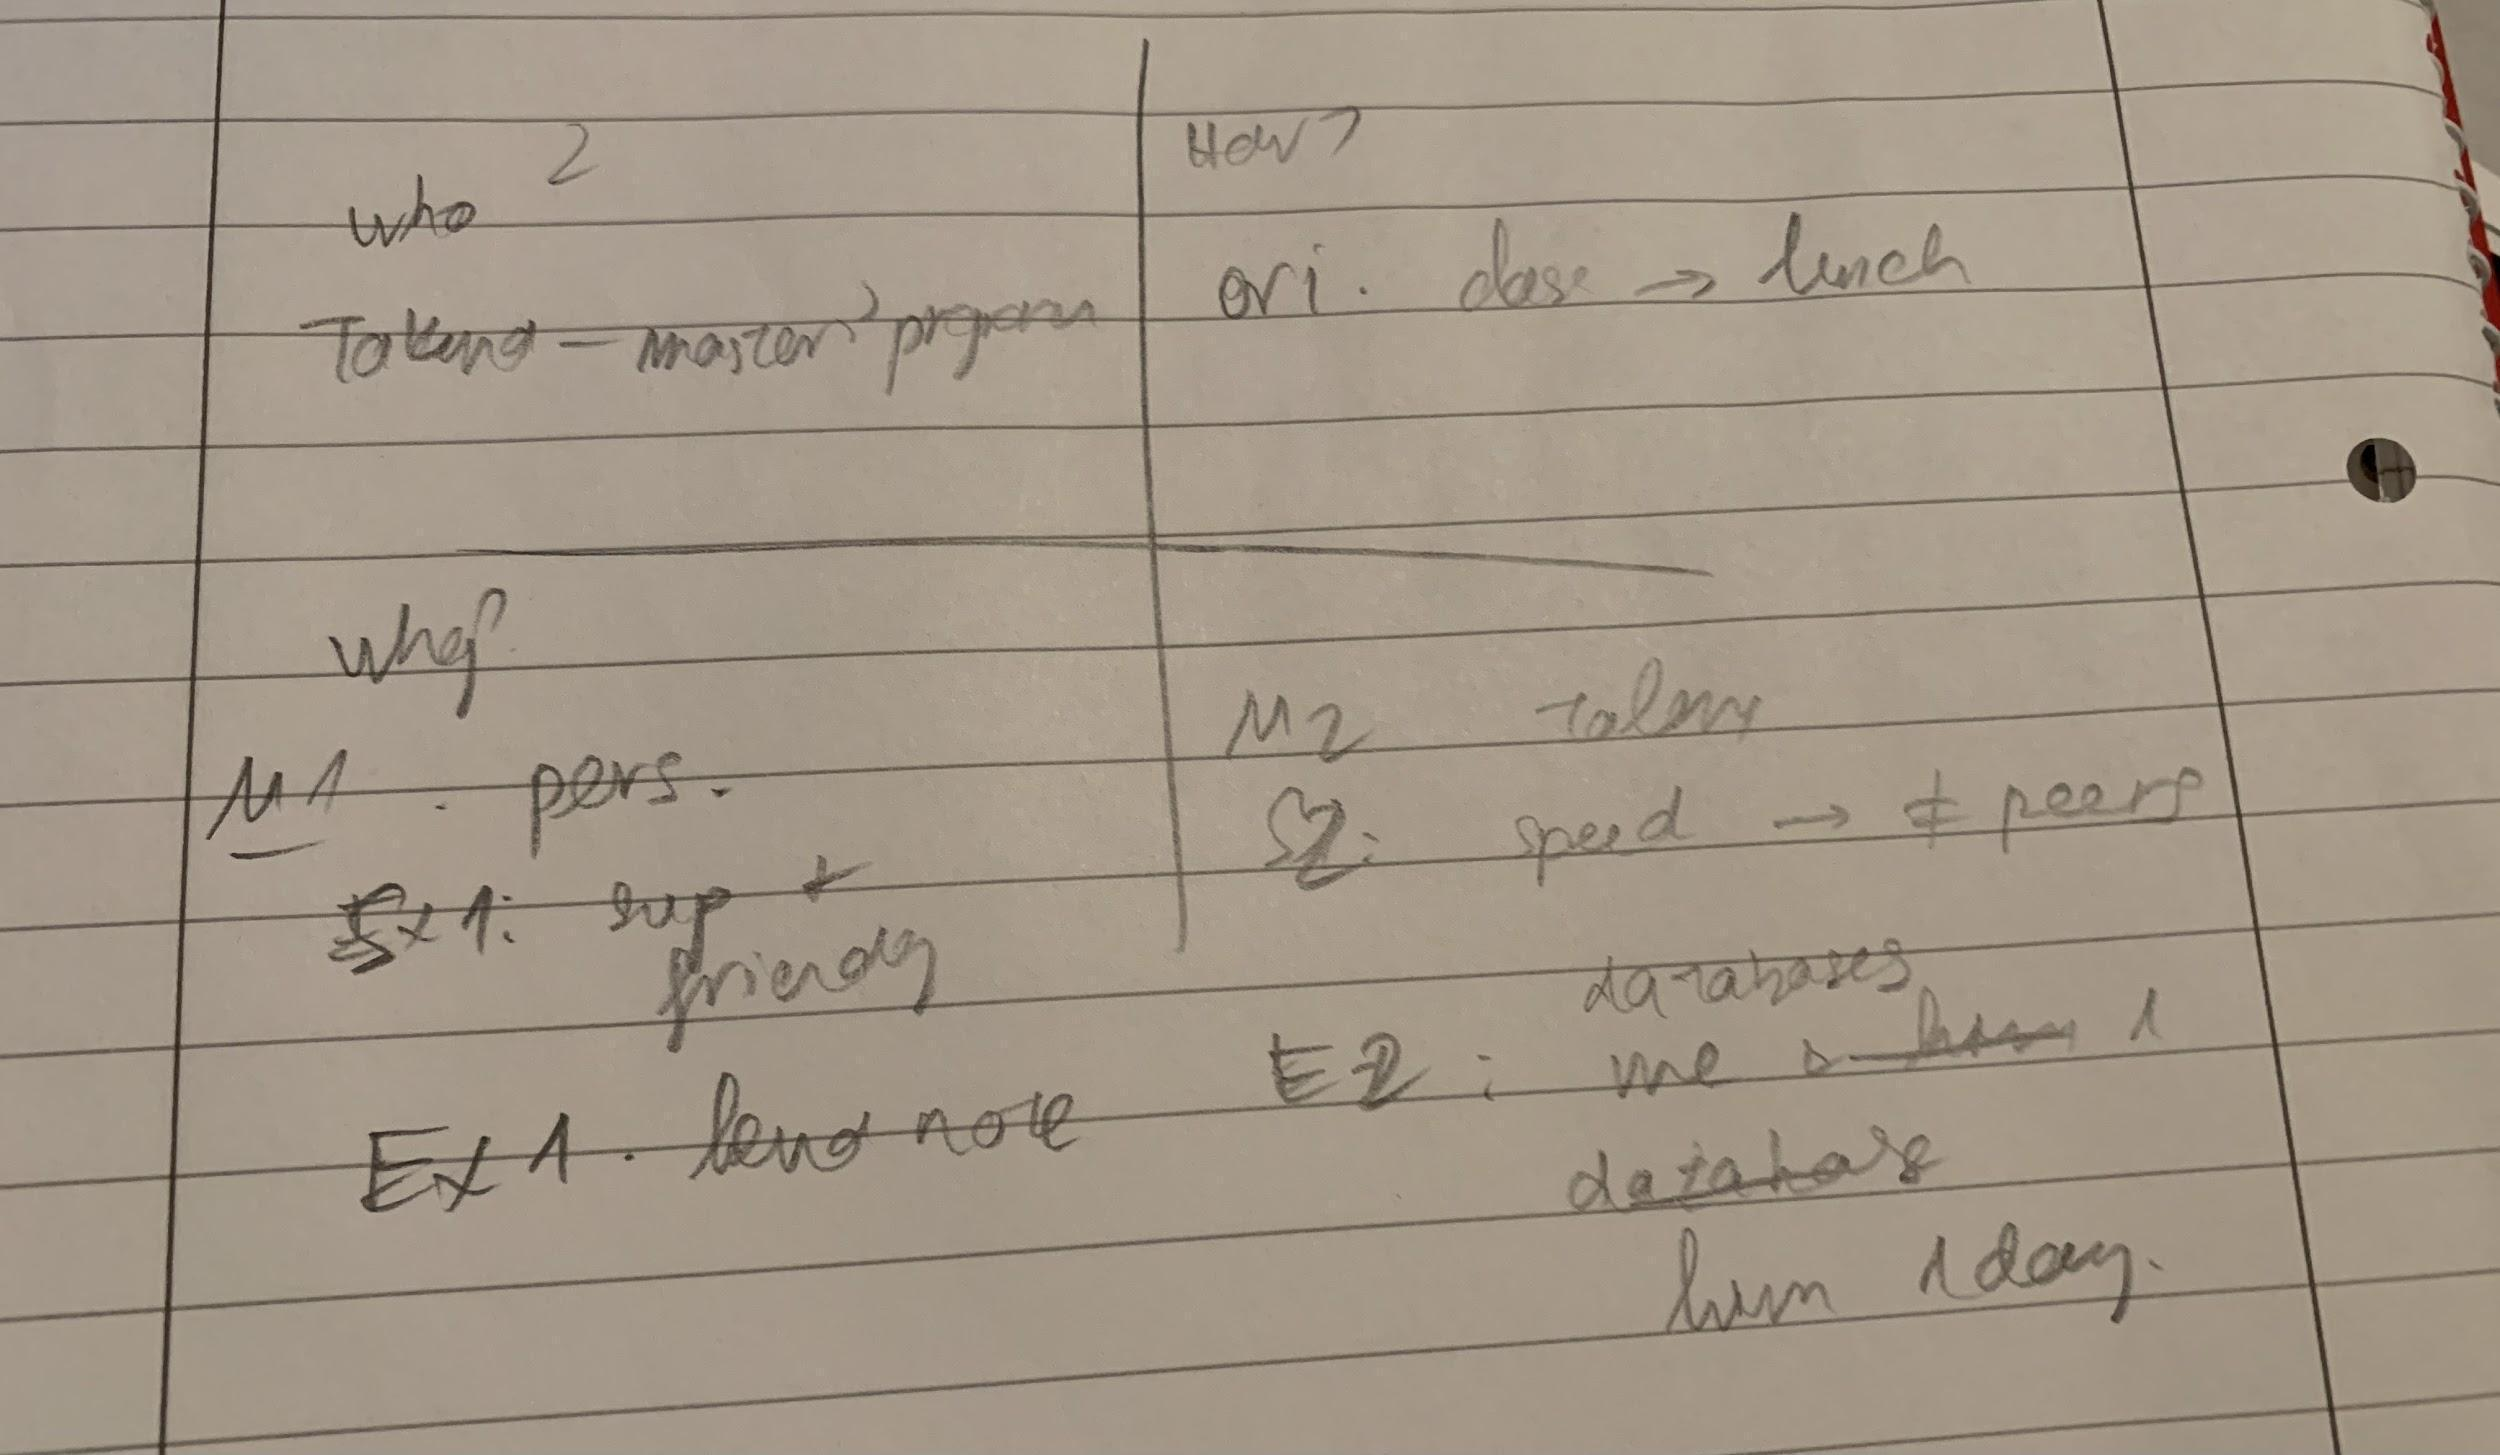 who ?
master' program
How?
ori. class → lunch
why?
M1. pers.
Ex1: sup +
friendly
Ex1. lend note
M2 talent
S2: speed → ≠ peers
databases
E2: me 1
database
him 1 day.